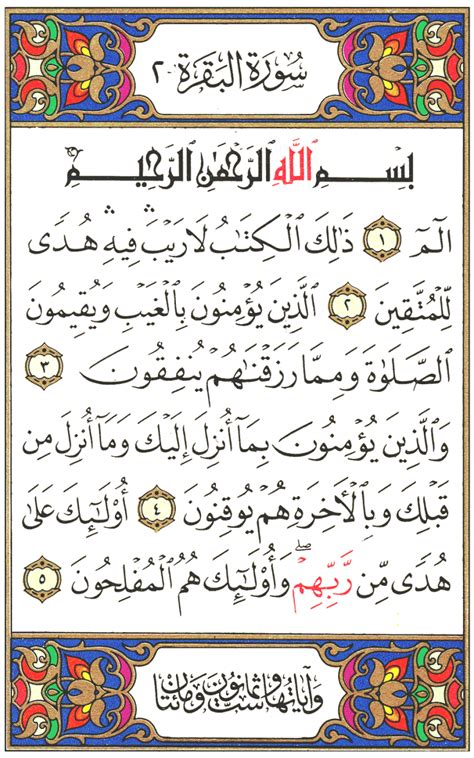 سُورَةُ البَقَرَة ٢
بِسْمِ اللَّهِ الرَّحْمَٰنِ الرَّحِيمِ
الٓمٓ ١ ذَٰلِكَ الْكِتَابُ لَا رَيْبَ ۛ فِيهِ ۛ هُدًى
لِّلْمُتَّقِينَ ٢ الَّذِينَ يُؤْمِنُونَ بِالْغَيْبِ وَيُقِيمُونَ
الصَّلَوٰةَ وَمِمَّا رَزَقْنَاهُمْ يُنفِقُونَ ٣
وَالَّذِينَ يُؤْمِنُونَ بِمَا أُنزِلَ إِلَيْكَ وَمَا أُنزِلَ مِن
قَبْلِكَ وَبِالْآخِرَةِ هُمْ يُوقِنُونَ ٤ أُوْلَٰٓئِكَ عَلَىٰ
هُدًى مِّن رَّبِّهِمْ ۖ وَأُوْلَٰٓئِكَ هُمُ الْمُفْلِحُونَ ٥
وَآيَاتُهَا سِتٌّ وَثَمَانُونَ وَمِائَتَانِ